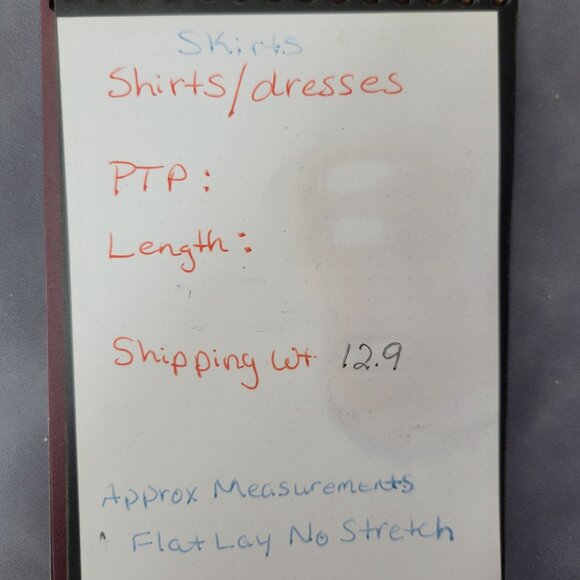 Skirts
Shirts/dresses
PTP:
Length:
Shipping Wt. 12.9
Approx Measurements
Flat Lay No Stretch